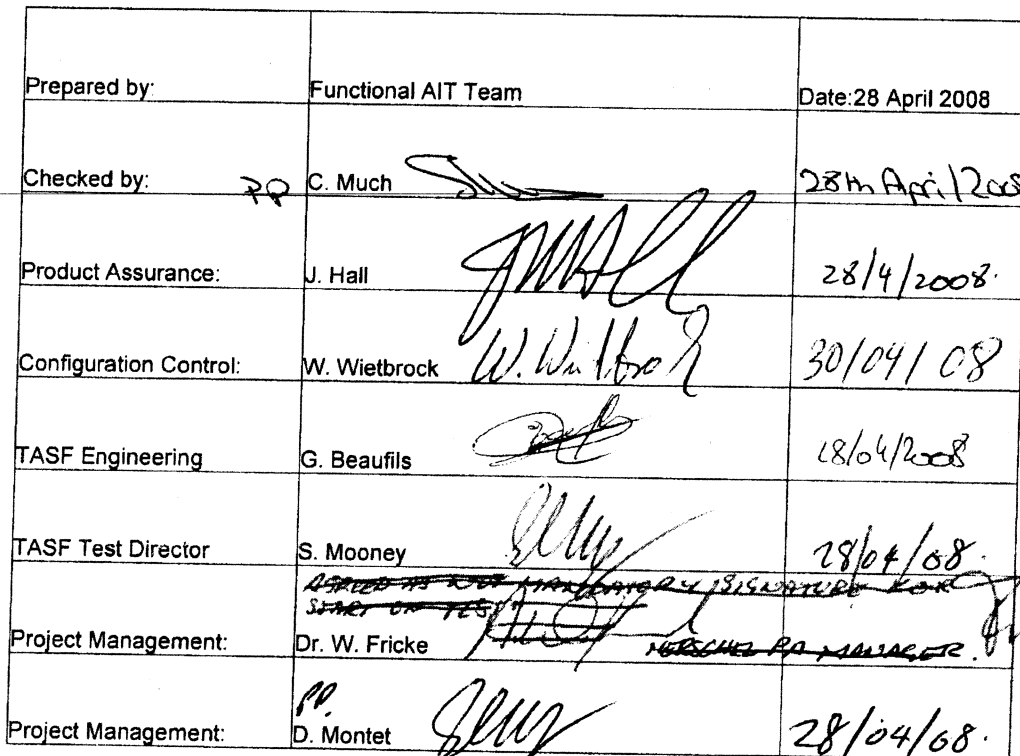 Prepared by: Functional AIT Team Date:28 April 2008
Checked by: PP C. Much 28th April 2008
Product Assurance: J. Hall 28/4/2008.
Configuration Control: W. Wietbrock W. Wietbrock 30/04/08
TASF Engineering G. Beaufils 28/04/2008
TASF Test Director S. Mooney 28/04/08.
AGREED AS NOT MANDATORY SIGNATURE FOR
START ON TEST
Project Management: Dr. W. Fricke HERSCHEL PA MANAGER.
PP.
Project Management: D. Montet 28/04/08.